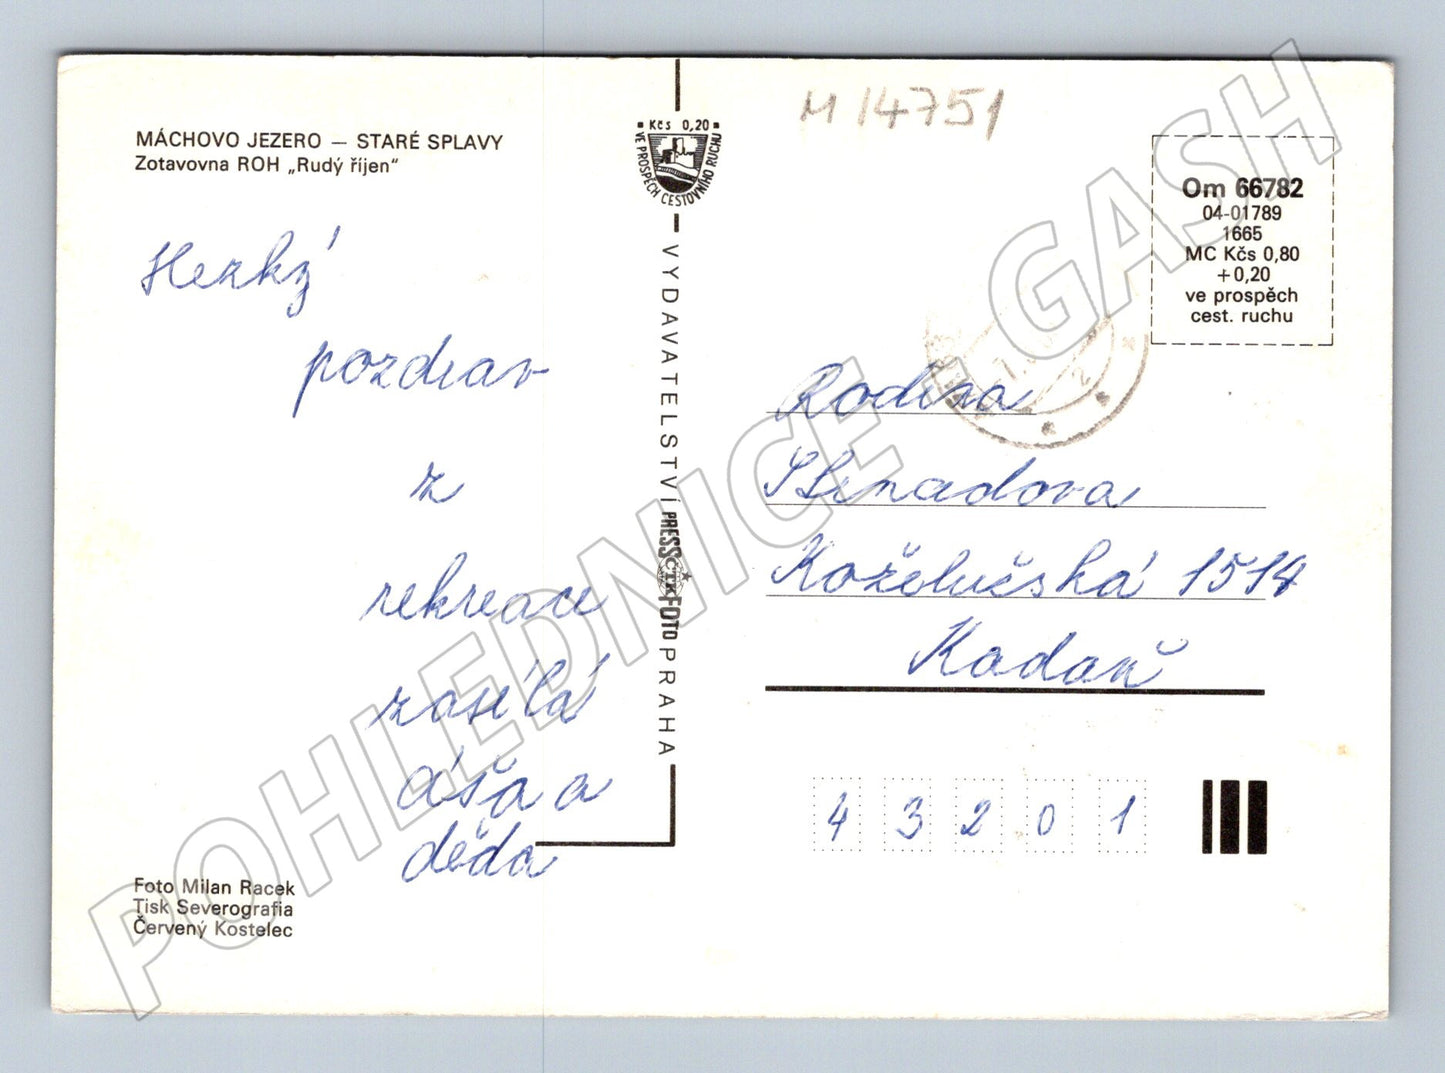 M 14751
MÁCHOVO JEZERO — STARÉ SPLAVY
Zotavovna ROH „Rudý říjen“
Hezký
pozdrav
z
rekreace
zasílá
áša a
děda
Foto Milan Racek
Tisk Severografia
Červený Kostelec
Kčs 0,20
VE PROSPĚCH CESTOVNÍHO RUCHU
VYDAVATELSTVÍ PRESSFOTO PRAHA
ČTK
Om 66782
04-01789
1665
MC Kčs 0,80
+0,20
ve prospěch
cest. ruchu
Rodina
Koželužská 1514
Kadaň
43201
POHLEDNICE - GASH